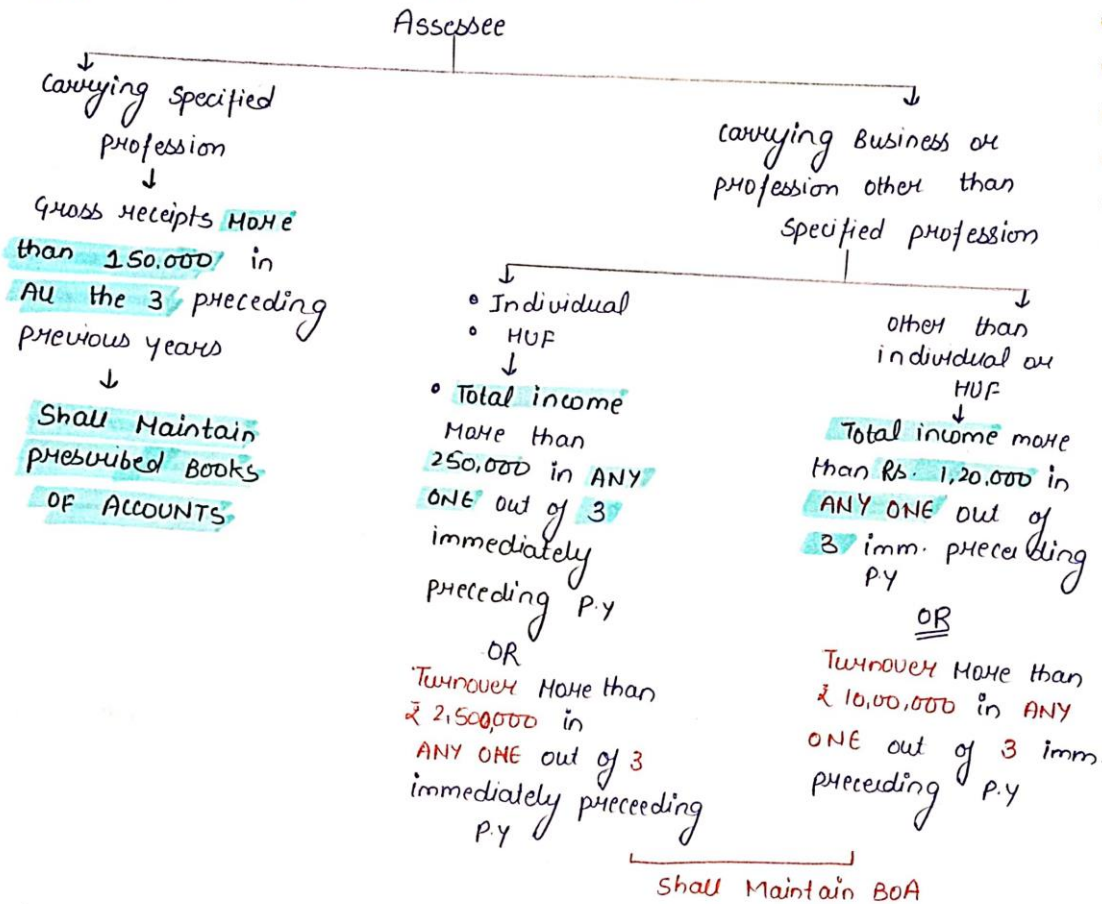 Assessee
Carrying Specified
profession
Gross receipts More
than 150,000 in
All the 3 preceding
previous years
Shall Maintain
prescribed BOOKS
OF ACCOUNTS
carrying Business or
profession other than
Specified profession
• Individual
• HUF
• Total income
More than
250,000 in ANY
ONE out of 3
immediately
preceding P.Y
OR
Turnover More than
₹ 2,500,000 in
ANY ONE out of 3
immediately preceeding
P.Y
other than
individual or
HUF
Total income more
than Rs. 1,20,000 in
ANY ONE out of
3 imm. preceeding
P.Y
OR
Turnover More than
₹ 10,00,000 in ANY
ONE out of 3 imm
preceeding P.Y
Shall Maintain BOA